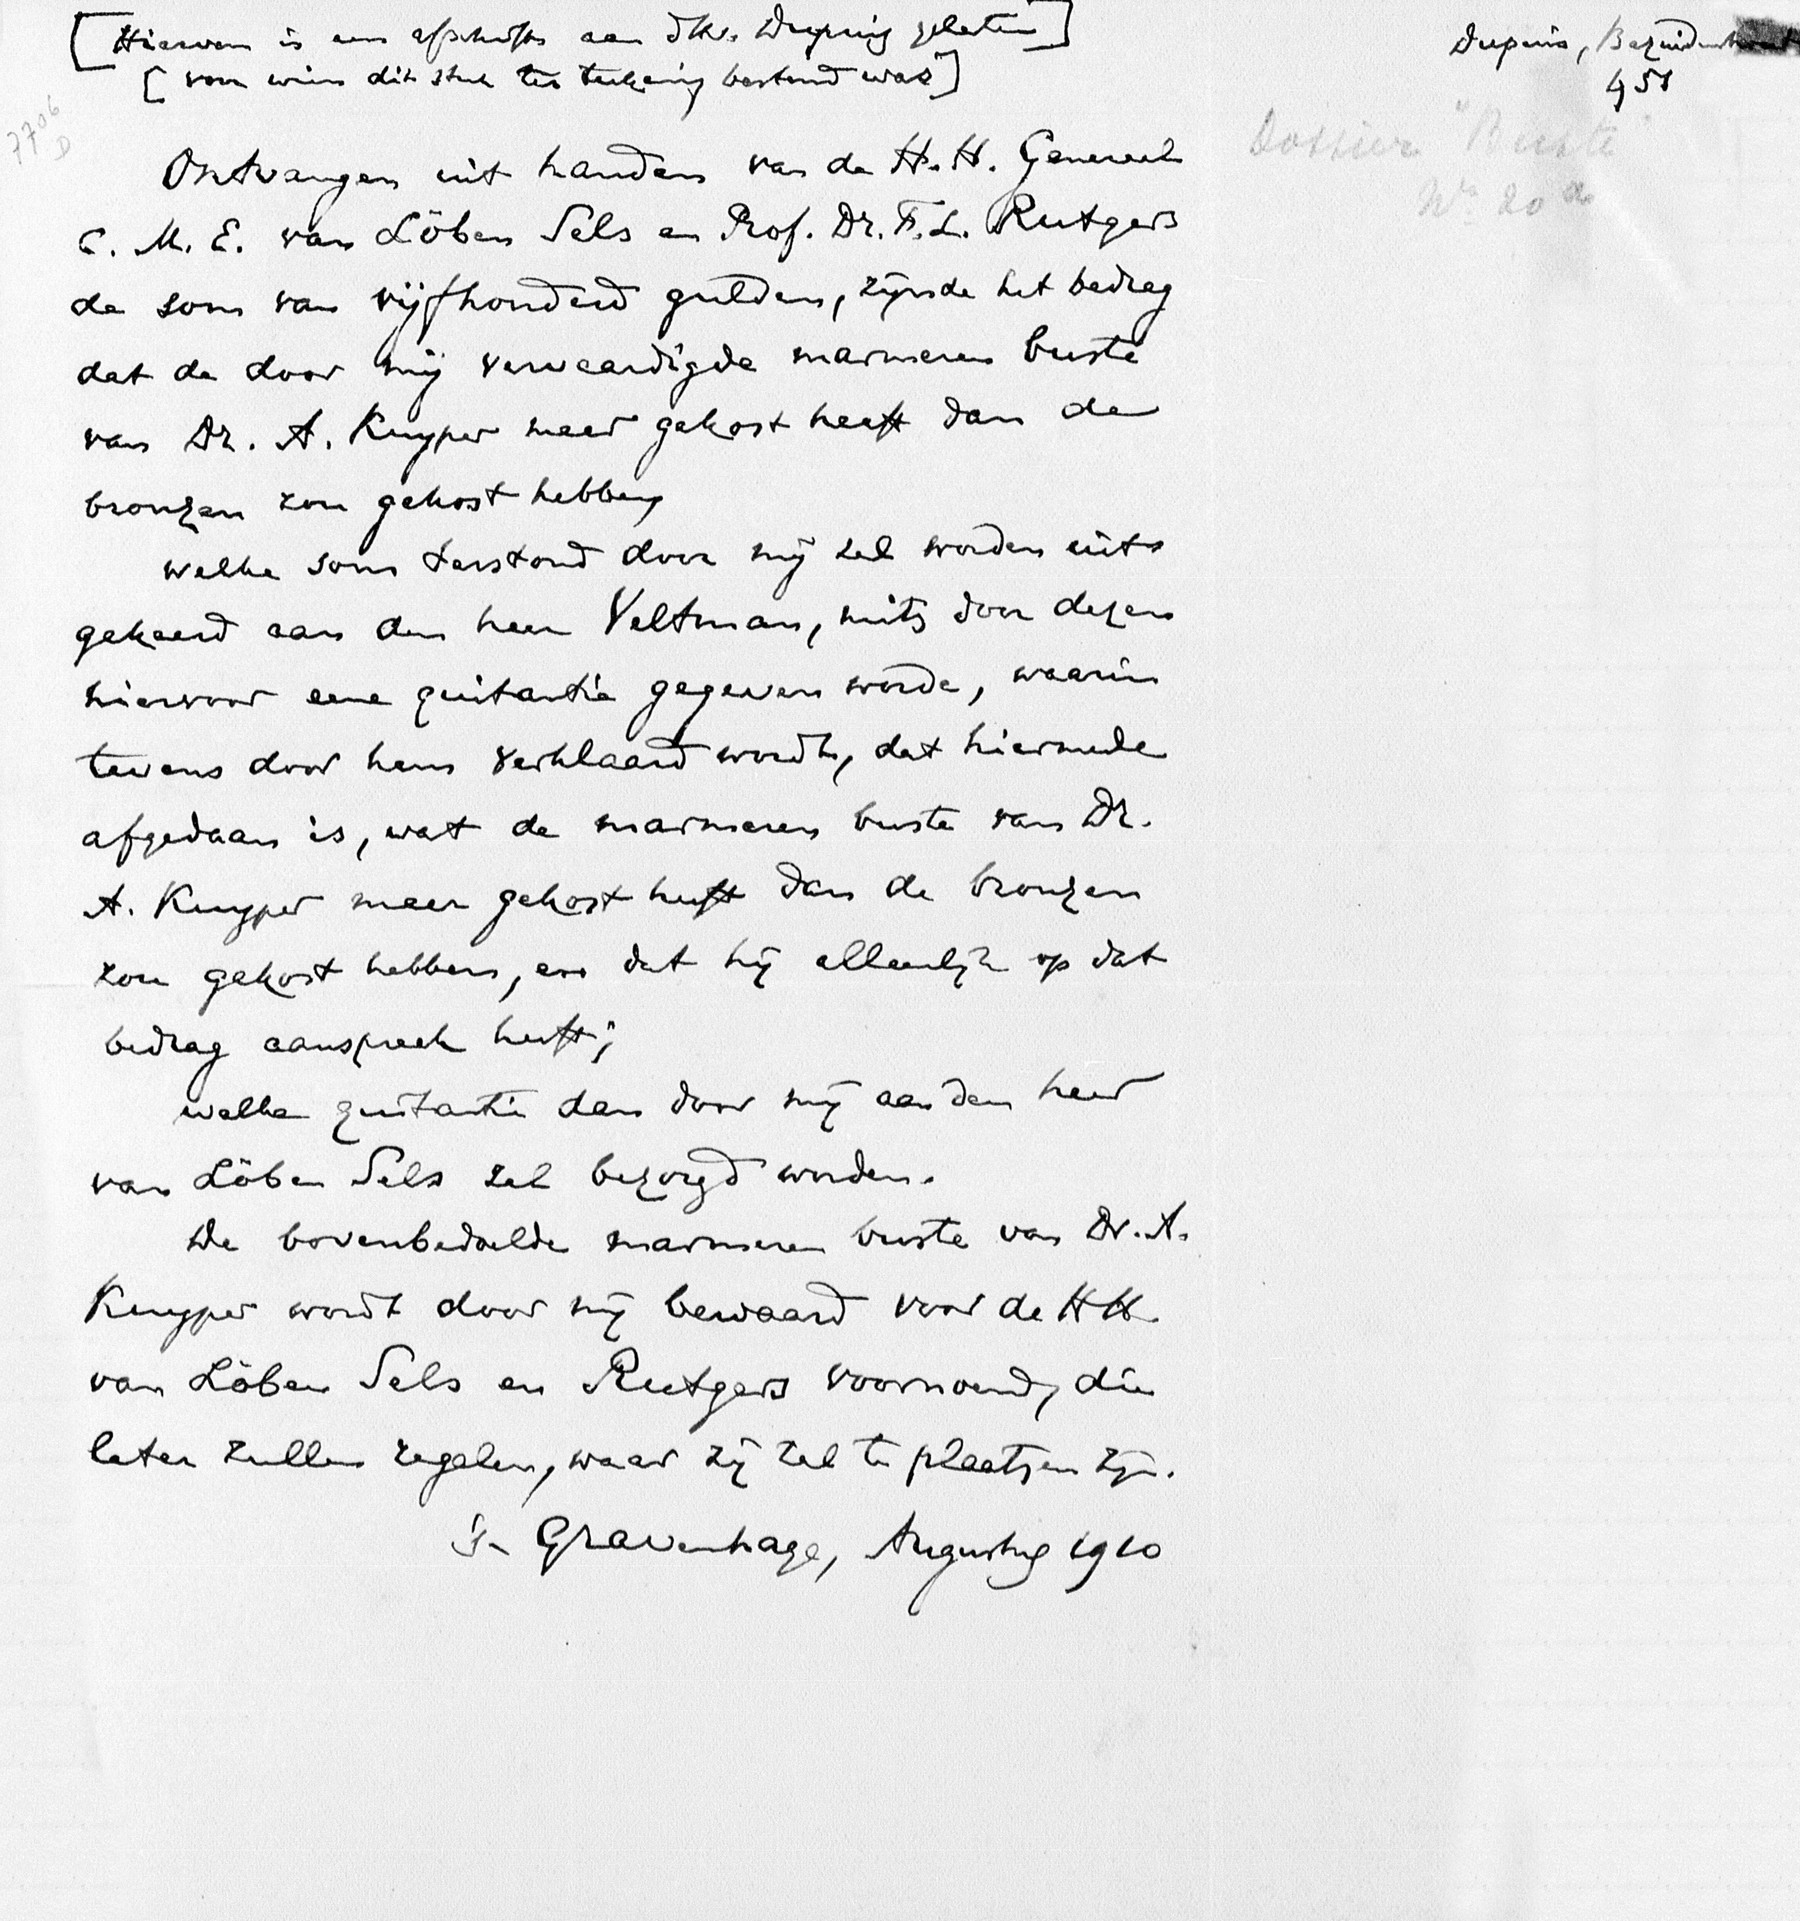 [Hiervan is een afschrift aan dhr. Dupuis gelaten]
[voor wien dit stuk ter teekening bestemd was]
Dupuis, Bezuidenhout
451
7706
D
Dossier "Buste"
No 20 d
Ontvangen uit handen van de H.H. Generaal
C. M. E. van Löben Sels en Prof. Dr. F. L. Rutgers
de som van vijfhonderd gulden, zijnde het bedrag
dat de door mij vervaardigde marmeren buste
van Dr. A. Kuyper meer gekost heeft dan de
bronzen zou gekost hebben,
welke som terstond door mij zal worden uit-
gekeerd aan den heer Veltman, mits door dezen
hiervoor eene quitantie gegeven worde, waarin
tevens door hem verklaard wordt, dat hiermede
afgedaan is, wat de marmeren buste van Dr.
A. Kuyper meer gekost heeft dan de bronzen
zou gekost hebben, en dat hij alleenlijk op dat
bedrag aanspraak heeft;
welke quitantie dan door mij aan den heer
van Löben Sels zal bezorgd worden.
De bovenbedoelde marmeren buste van Dr. A.
Kuyper wordt door mij bewaard voor de HH.
van Löben Sels en Rutgers voornoemd, die
later zullen regelen, waar zij zal te plaatsen zijn.
's-Gravenhage, Augustus 1910